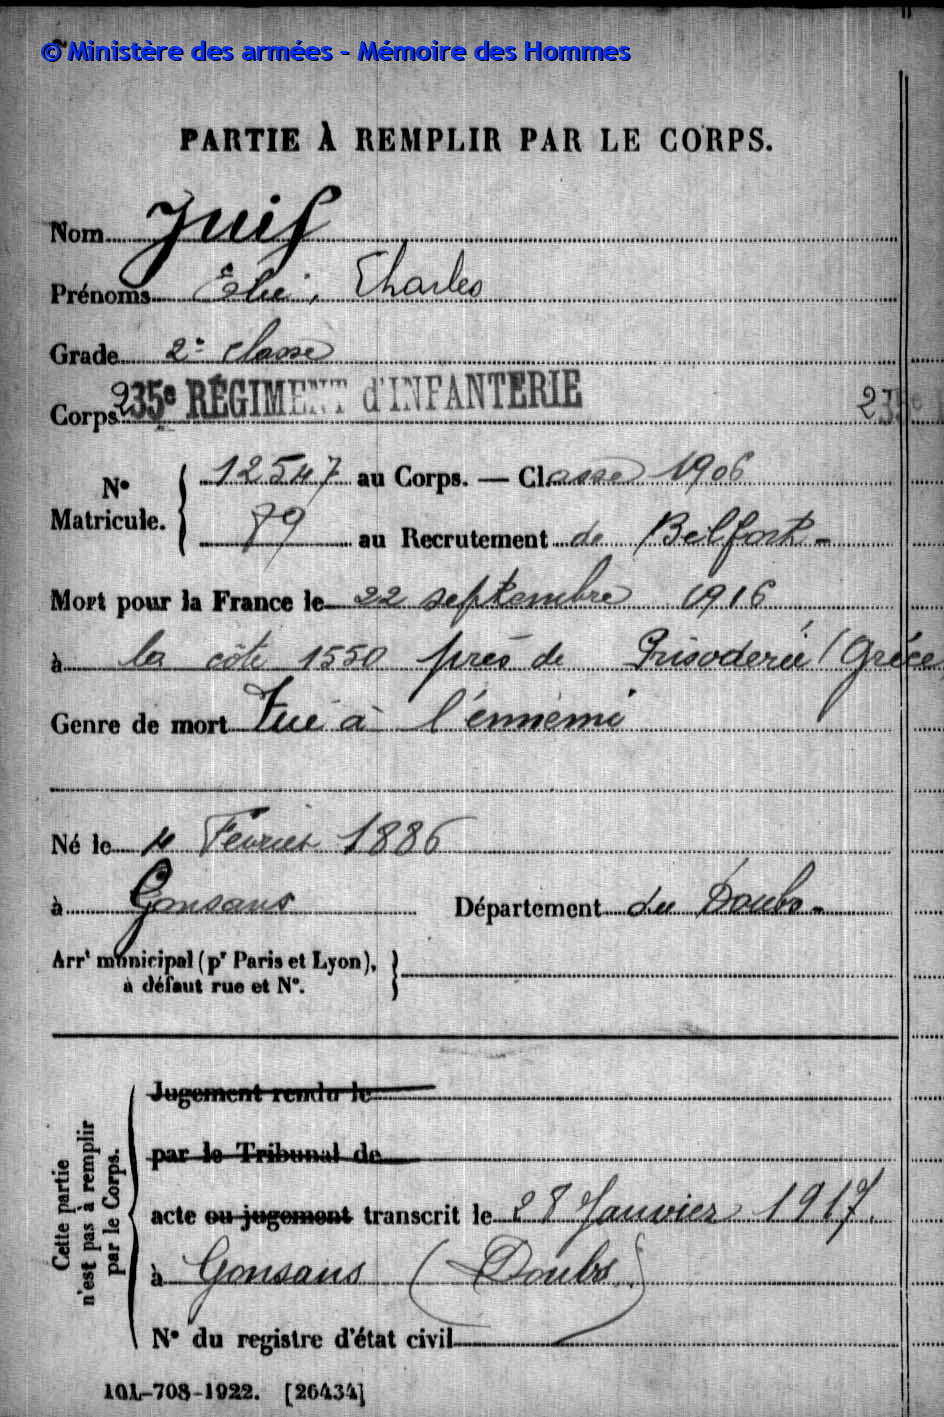 © Ministère des armées - Mémoire des Hommes
PARTIE À REMPLIR PAR LE CORPS.
Nom Juif
Prénoms Élie, Charles
Grade 2e classe
Corps 235e RÉGIMENT d'INFANTERIE 235e
N° Matricule. { 12547 au Corps. — Classe 1906
79 au Recrutement de Belfort -
Mort pour la France le 22 septembre 1916
à la côte 1550 près de Prisoderie (Grèce
Genre de mort Tué à l'ennemi
Né le 4 Février 1886
à Gonsans Département du Doubs -
Arrt municipal (pr Paris et Lyon),
à défaut rue et N°.
Cette partie n'est pas à remplir par le Corps.
Jugement rendu le
par le Tribunal de
acte ou jugement transcrit le 28 Janvier 1917.
à Gonsans (Doubs)
N° du registre d'état civil
101-708-1922. [26434]